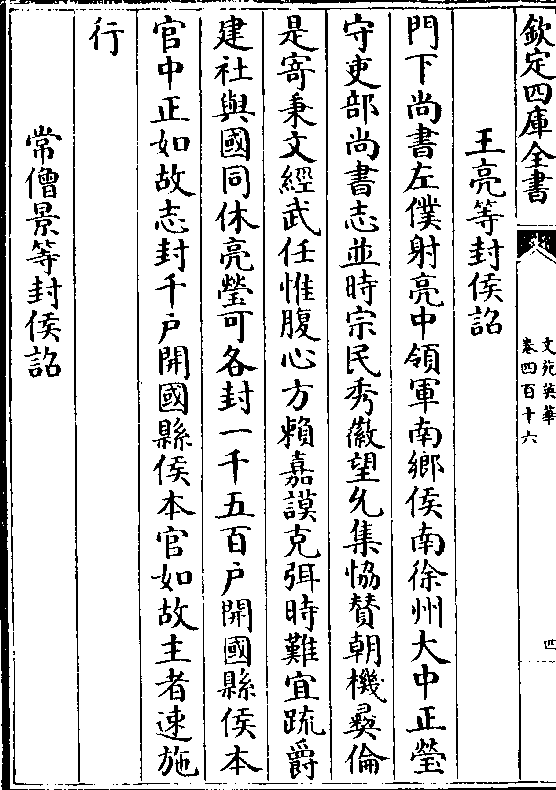 欽定四庫全書
文苑英華
卷四百十六
四
王亮等封侯詔
門下尚書左僕射亮中領軍南鄉侯南徐州大中正瑩
守吏部尚書志並時宗民秀徽望允集恊賛朝機彛倫
是寄秉文經武任惟腹心方賴嘉謨克弭時難宜疏爵
建社與國同休亮瑩可各封一千五百户開國縣侯本
官中正如故志封千户開國縣侯本官如故主者速施
行
常僧景等封侯詔